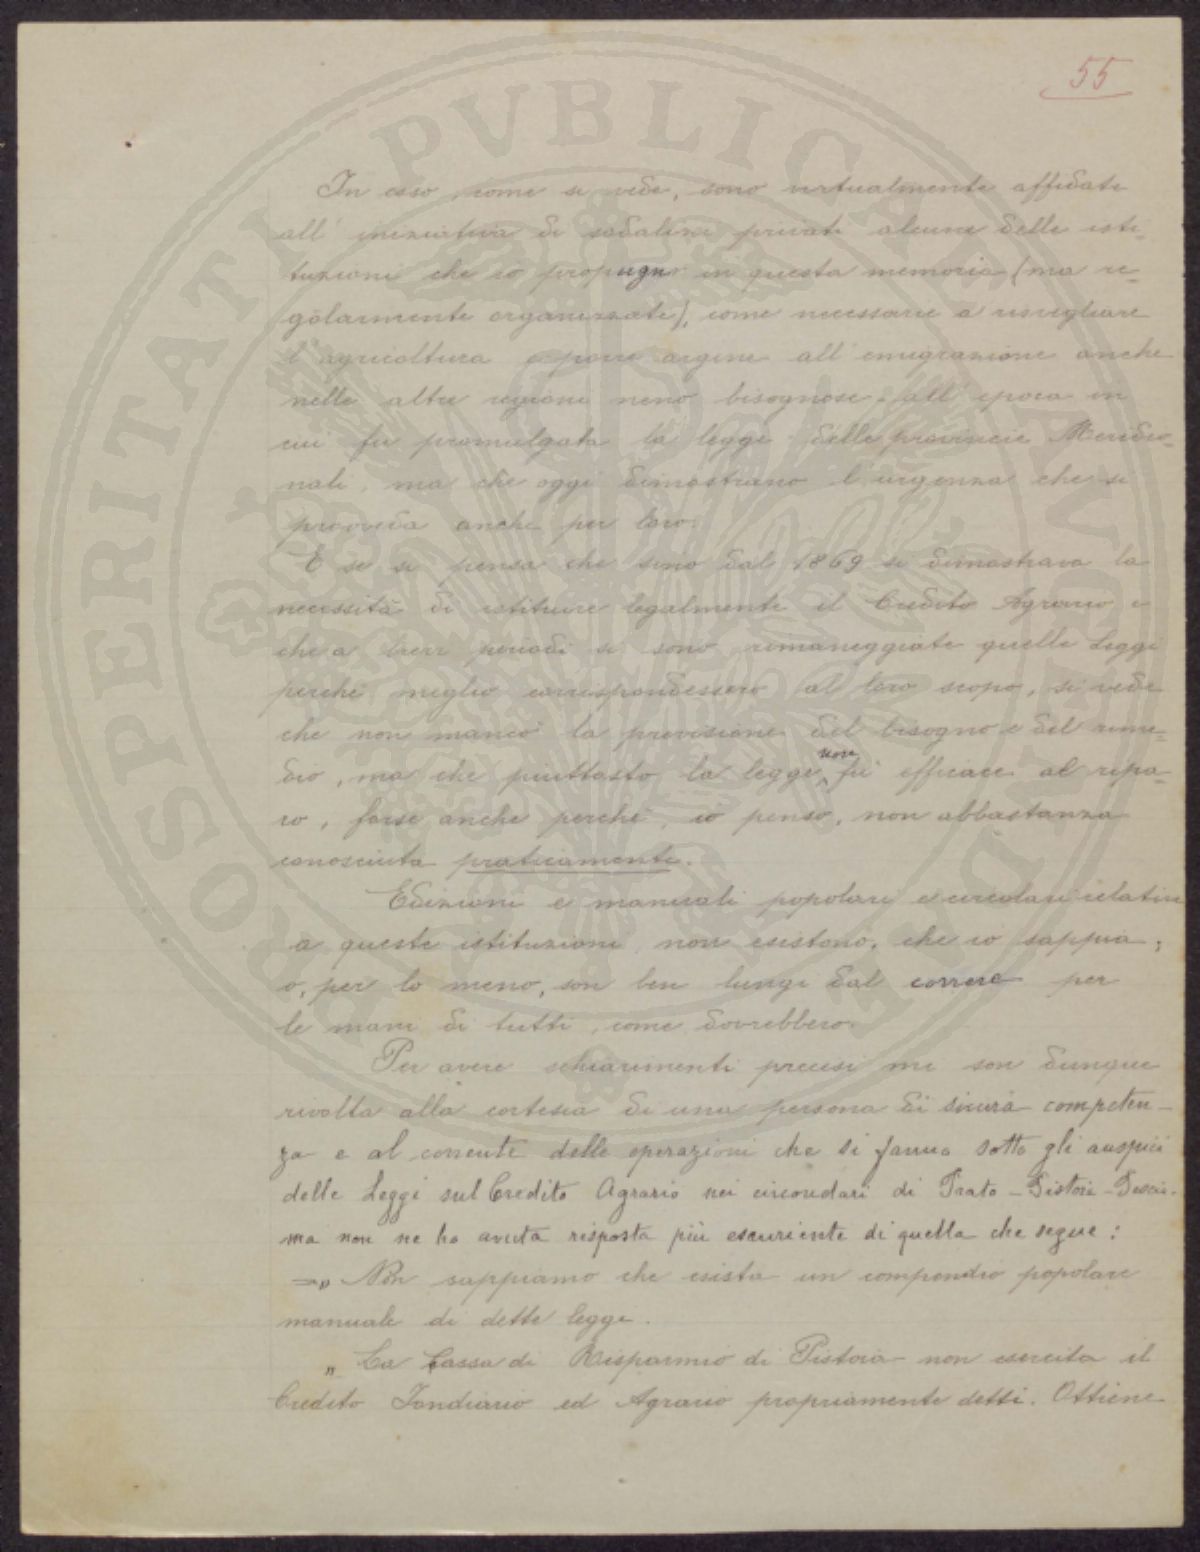 55
In esso, come si vede, sono virtualmente affidate
all' iniziativa di sodalizi privati alcune delle isti-
tuzioni che io propugno in questa memoria (ma re-
golarmente organizzate), come necessarie a risvegliare
l'agricoltura e porre argine all' emigrazione anche
nelle altre regioni meno bisognose all' epoca in
cui fu promulgata la legge delle provincie Meridio-
nali, ma che oggi dimostrano l' urgenza che si
provveda anche per loro.
E se si pensa che sino dal 1869 si dimostrava la
necessità di istituire legalmente il Credito Agrario e
che a brevi periodi si sono rimaneggiate quelle Leggi
perchè meglio corrispondessero al loro scopo, si vede
che non mancò la previsione del bisogno e del rime-
dio, ma che piuttosto la legge non fu efficace al ripa-
ro, forse anche perchè, io penso, non abbastanza
conosciuta praticamente.
Edizioni e manuali popolari e circolari relativi
a queste istituzioni non esistono, che io sappia;
o, per lo meno, son ben lungi dal correre per
le mani di tutti, come dovrebbero.
Per avere schiarimenti precisi mi son dunque
rivolta alla cortesia di una persona di sicura competen-
za e al corrente delle operazioni che si fanno sotto gli auspici
delle Leggi sul Credito Agrario nei circondari di Prato - Pistoia - Pescia.
ma non ne ho avuta risposta più esauriente di quella che segue:
=„ Non sappiamo che esista un compendio popolare
manuale di dette leggi.
„ La Cassa di Risparmio di Pistoia non esercita il
Credito Fondiario ed Agrario propriamente detti. Ottiene
PROSPERITATI PVBLICAE